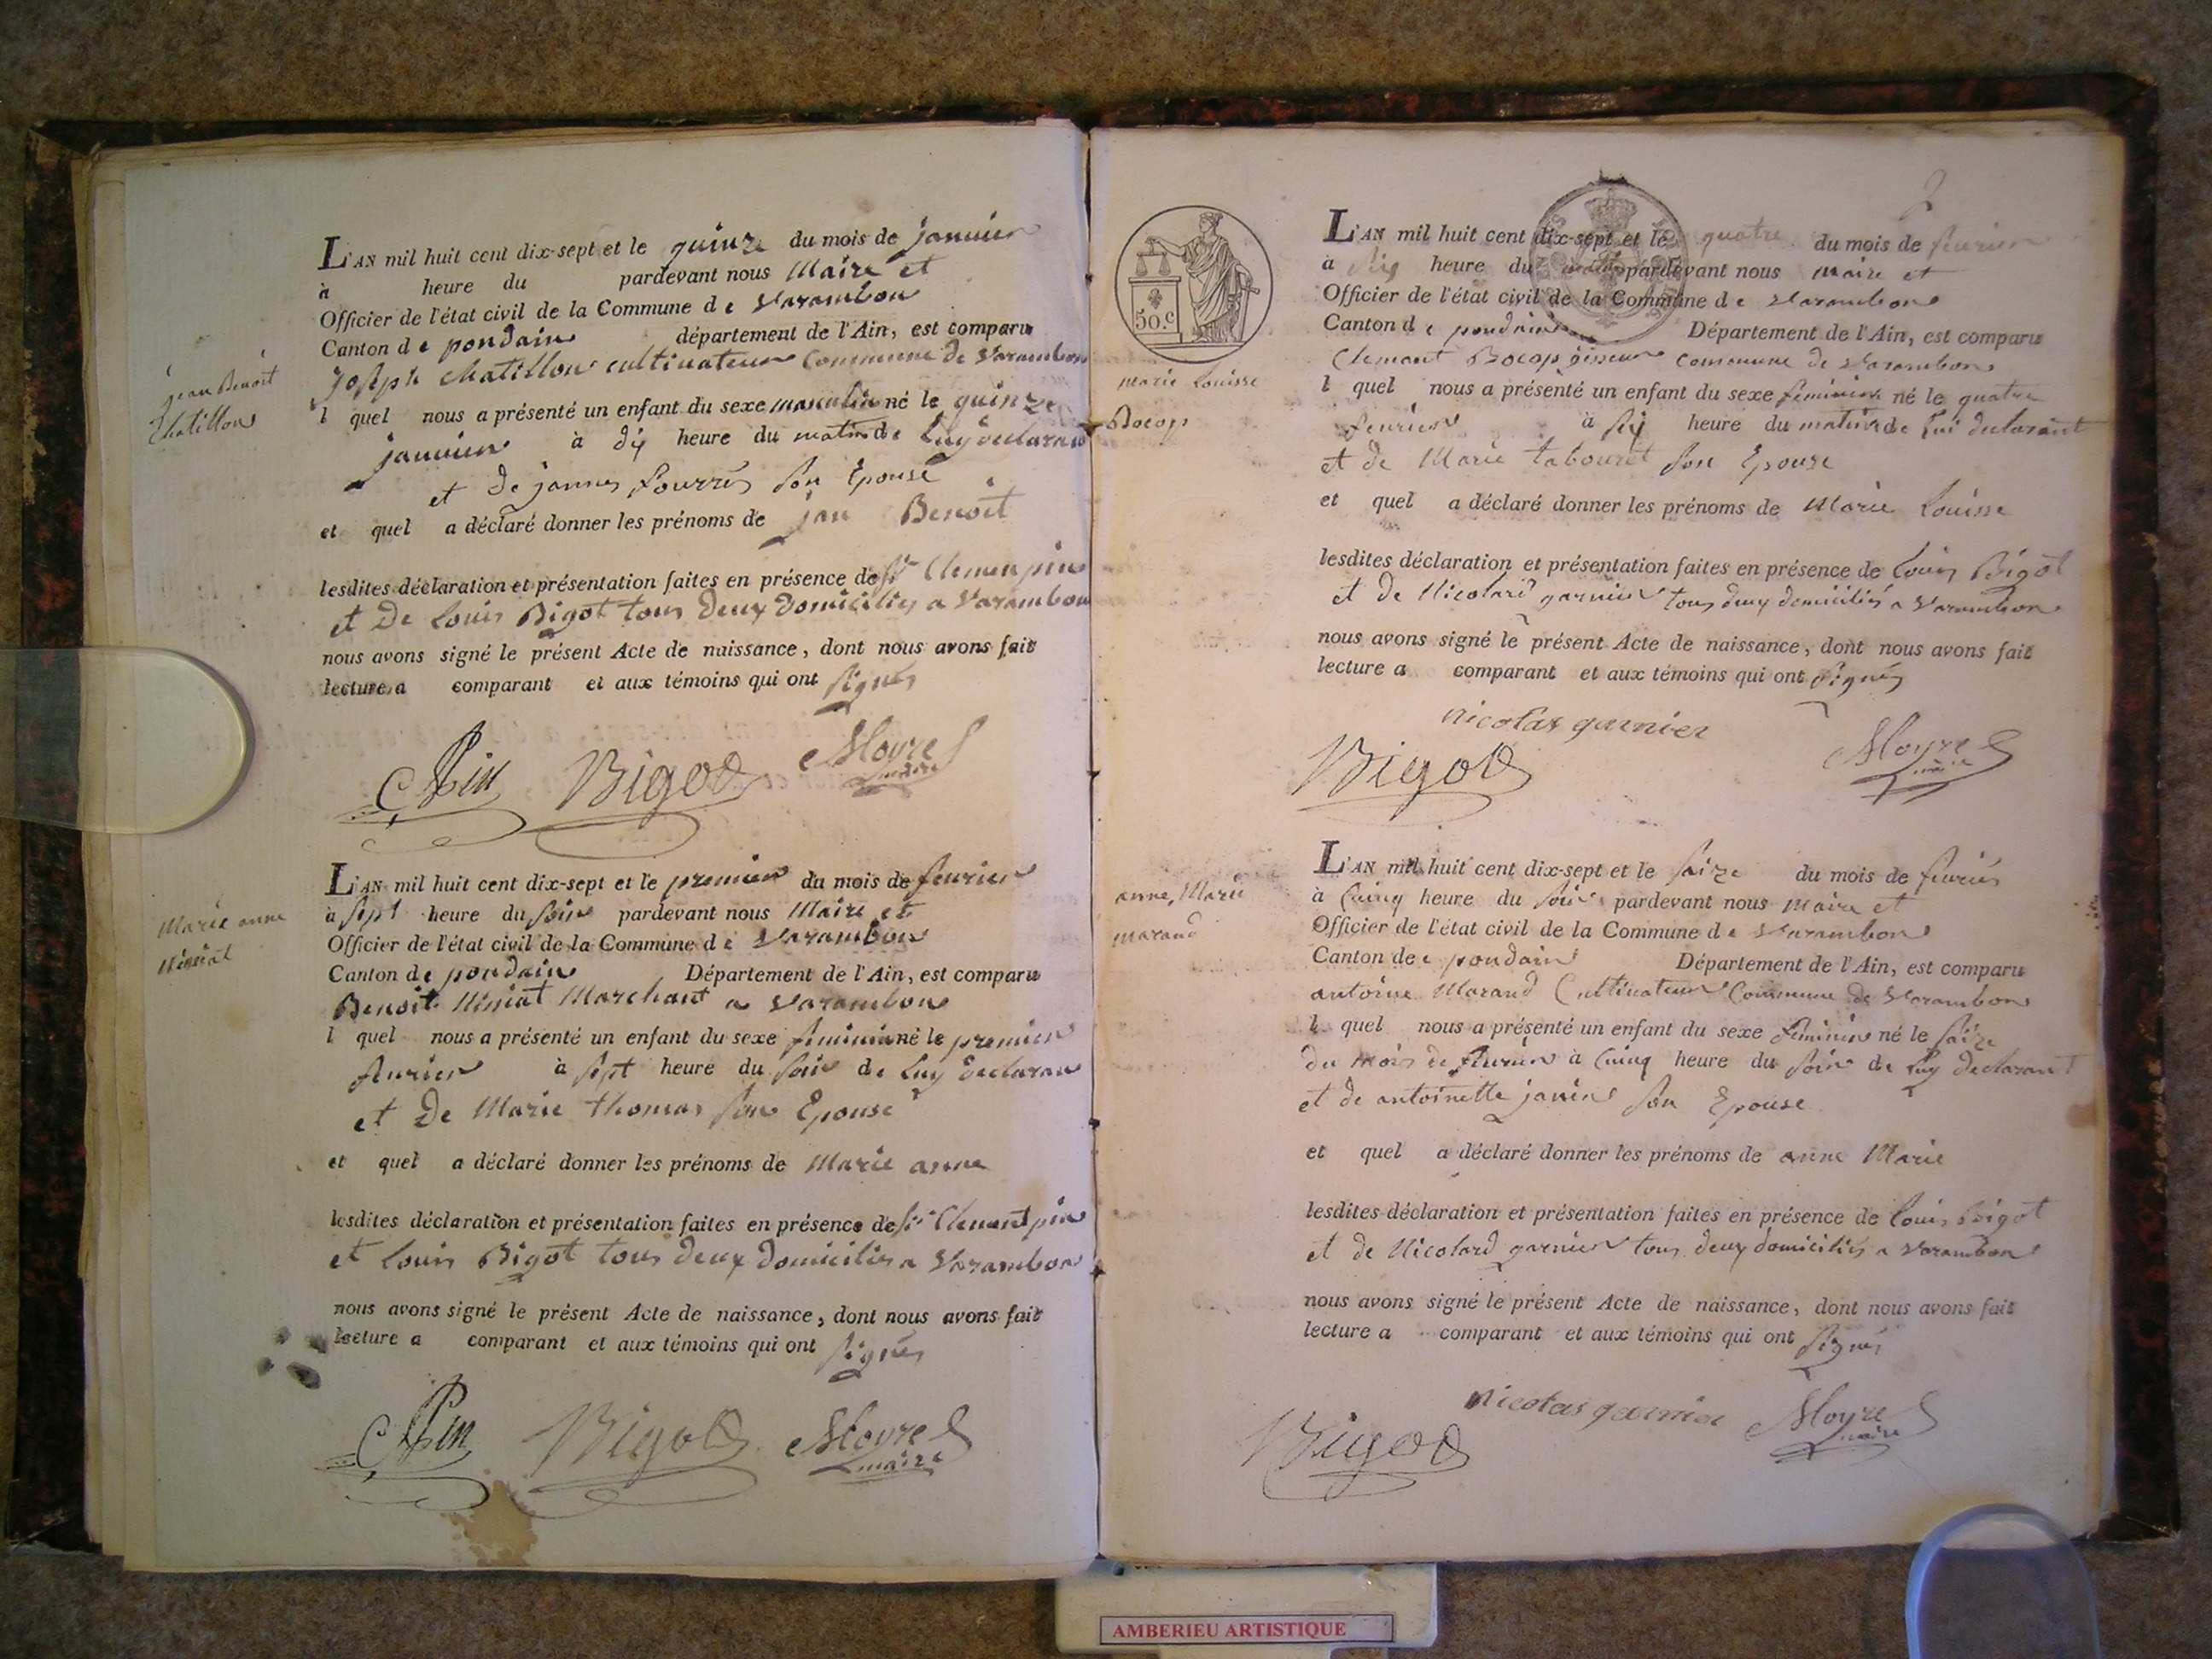 jean Benoit
Chatillon
L'AN mil huit cent dix-sept et le quinze du mois de janvier
à heure du pardevant nous Maire et
Officier de l'état civil de la Commune de Varambon
Canton de pondain département de l'Ain, est comparu
Joseph Chatillon cultivateur Commune de Varambon
l quel nous a présenté un enfant du sexe masculin né le quinze
janvier à dix heure du matin de luy declarant
et de jannes fourres son Epouse
et quel a déclaré donner les prénoms de jan Benoit
lesdites déclaration et présentation faites en présence de Sr Clemen pin
et De Louis Bigot tous Deux Domiciliés a Varambon
nous avons signé le présent Acte de naissance, dont nous avons fait
lecture a comparant et aux témoins qui ont signés
CPin Bigot Moyret
maire
Marie anne
Miniat
L'AN mil huit cent dix-sept et le premier du mois de fevrier
à sept heure du soir pardevant nous Maire et
Officier de l'état civil de la Commune de Varambon
Canton de pondain Département de l'Ain, est comparu
Benoit Miniat Marchant a Varambon
l quel nous a présenté un enfant du sexe feminin né le premier
fevrier à sept heure du soir de luy declarant
et De Marie thomas son Epouse
et quel a déclaré donner les prénoms de Marie anne
lesdites déclaration et présentation faites en présence de Sr Clement pin
et Louis Bigot tous deux Domiciliés a Varambon
nous avons signé le présent Acte de naissance, dont nous avons fait
lecture a comparant et aux témoins qui ont signés
CPin Bigot Moyret
maire
2
50.c
marie Louisse
Bocop
L'AN mil huit cent dix-sept et le quatre du mois de fevrier
à six heure du matin pardevant nous maire et
Officier de l'état civil de la Commune de Varambon
Canton de pondain Département de l'Ain, est comparu
Clemant Bocop commune de Varambon
l quel nous a présenté un enfant du sexe feminin né le quatre
fevrier à six heure du matin de lui declarant
et de Marie tabouret son Epouse
et quel a déclaré donner les prénoms de Marie Louisse
lesdites déclaration et présentation faites en présence de Louis Bigot
et de Nicolard garnier tous deux domiciliés a Varambon
nous avons signé le présent Acte de naissance, dont nous avons fait
lecture a comparant et aux témoins qui ont signés
nicolas garnier
Bigot Moyret
maire
anne, Marie
marand
L'AN mil huit cent dix-sept et le saize du mois de fevrier
à Cainq heure du soir pardevant nous maire et
Officier de l'état civil de la Commune de Varambon
Canton de pondain Département de l'Ain, est comparu
antoine Marand Cultivateur Commune de Varambon
l quel nous a présenté un enfant du sexe feminin né le saize
du mois de fevrier à Cainq heure du soir de luy declarant
et de antoinette janin son Epouse
et quel a déclaré donner les prénoms de anne Marie
lesdites déclaration et présentation faites en présence de Louis Bigot
et de Nicolard garnier tous deux domiciliés a Varambon
nous avons signé le présent Acte de naissance, dont nous avons fait
lecture a comparant et aux témoins qui ont signés
nicolas garnier Moyret
Bigot maire
AMBERIEU ARTISTIQUE